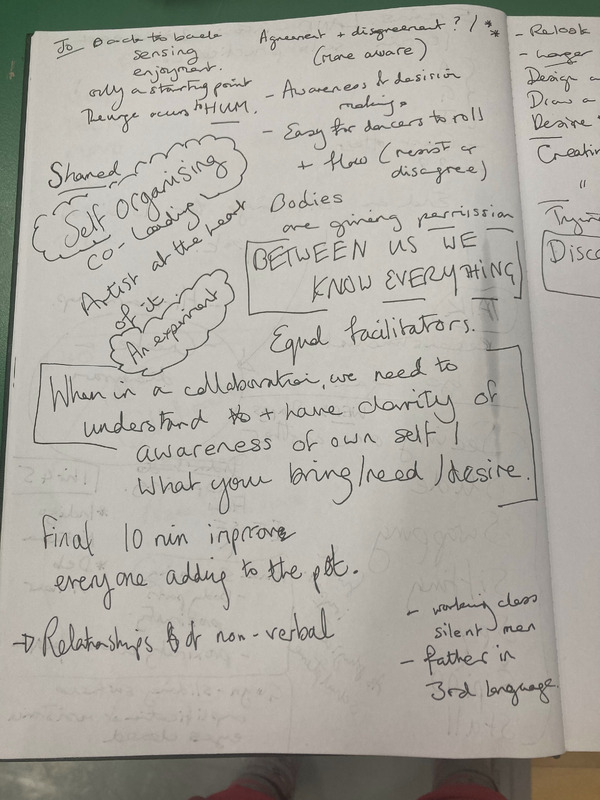 Jo Back to back
sensing
enjoyment.
only a starting point
The urge occurs to HUM.
Agreement + disagreement? / **
(more aware)
- Awareness & decision
making.
- Easy for dancers to roll
+ flow (resist or
disagree)
Shared
Self Organising
CO-Leading
Artist at the heart
of it
An experiment
Bodies
are giving permission
BETWEEN US WE
KNOW EVERYTHING
Equal facilitators.
When in a collaboration, we need to
understand + have clarity of
awareness of own self /
What your bring/need/desire.
Final 10 min improv
everyone adding to the pot.
→ Relationships & non-verbal
- working class
silent men
- father in
3rd language.
- Relook
- Larger
Design a
Draw a
Desire
Creatin
"
Tryin
Disco